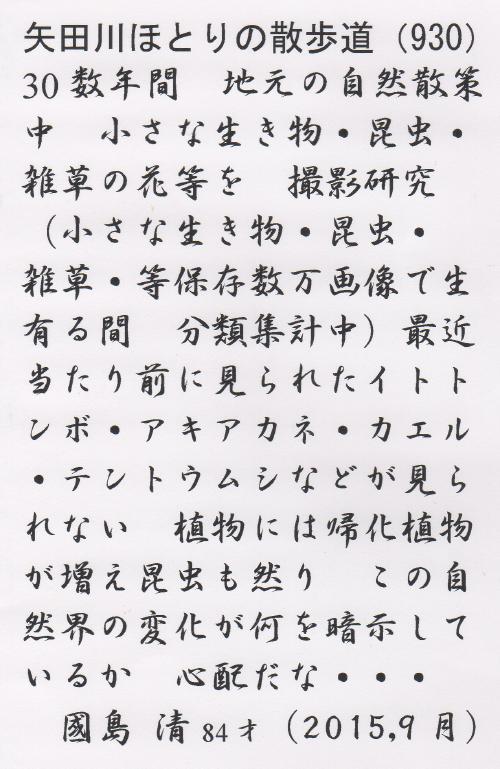 矢田川ほとりの散歩道（930）
30数年間　地元の自然散策
中　小さな生き物・昆虫・
雑草の花等を　撮影研究
（小さな生き物・昆虫・
雑草・等保存数万画像で生
有る間　分類集計中）最近
当たり前に見られたイトト
ンボ・アキアカネ・カエル
・テントウムシなどが見ら
れない　植物には帰化植物
が増え昆虫も然り　この自
然界の変化が何を暗示して
いるか　心配だな・・・
國島 清 84才（2015,9月）